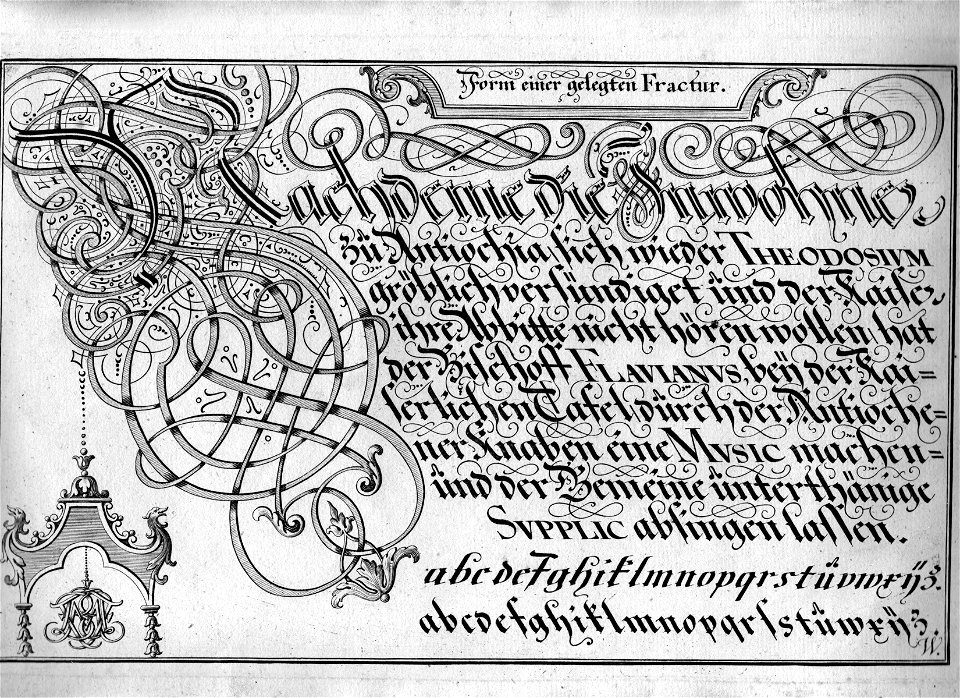 Form einer gelegten Fractur.
Nachdeme die Innwohner
zů Antiochia sich wieder THEODOSIVM
gröblich versündiget ünd der Kaiser
ihre Abbitte nicht hören wollen, hat
der Bischoff FLAVIANVS, beÿ der Kai=
serlichen Tafel, dürch der Antioche=
ner Knaben eine MVSIC machen=
ünd der Gemeine ünterthänige
SVPPLIC absingen lassen.
a b c d e f g h i k l m n o p q r s t ů v w x ÿ z.
a b c d e f g h i k l m n o p q r ſ s t ů w x ÿ z.
W.